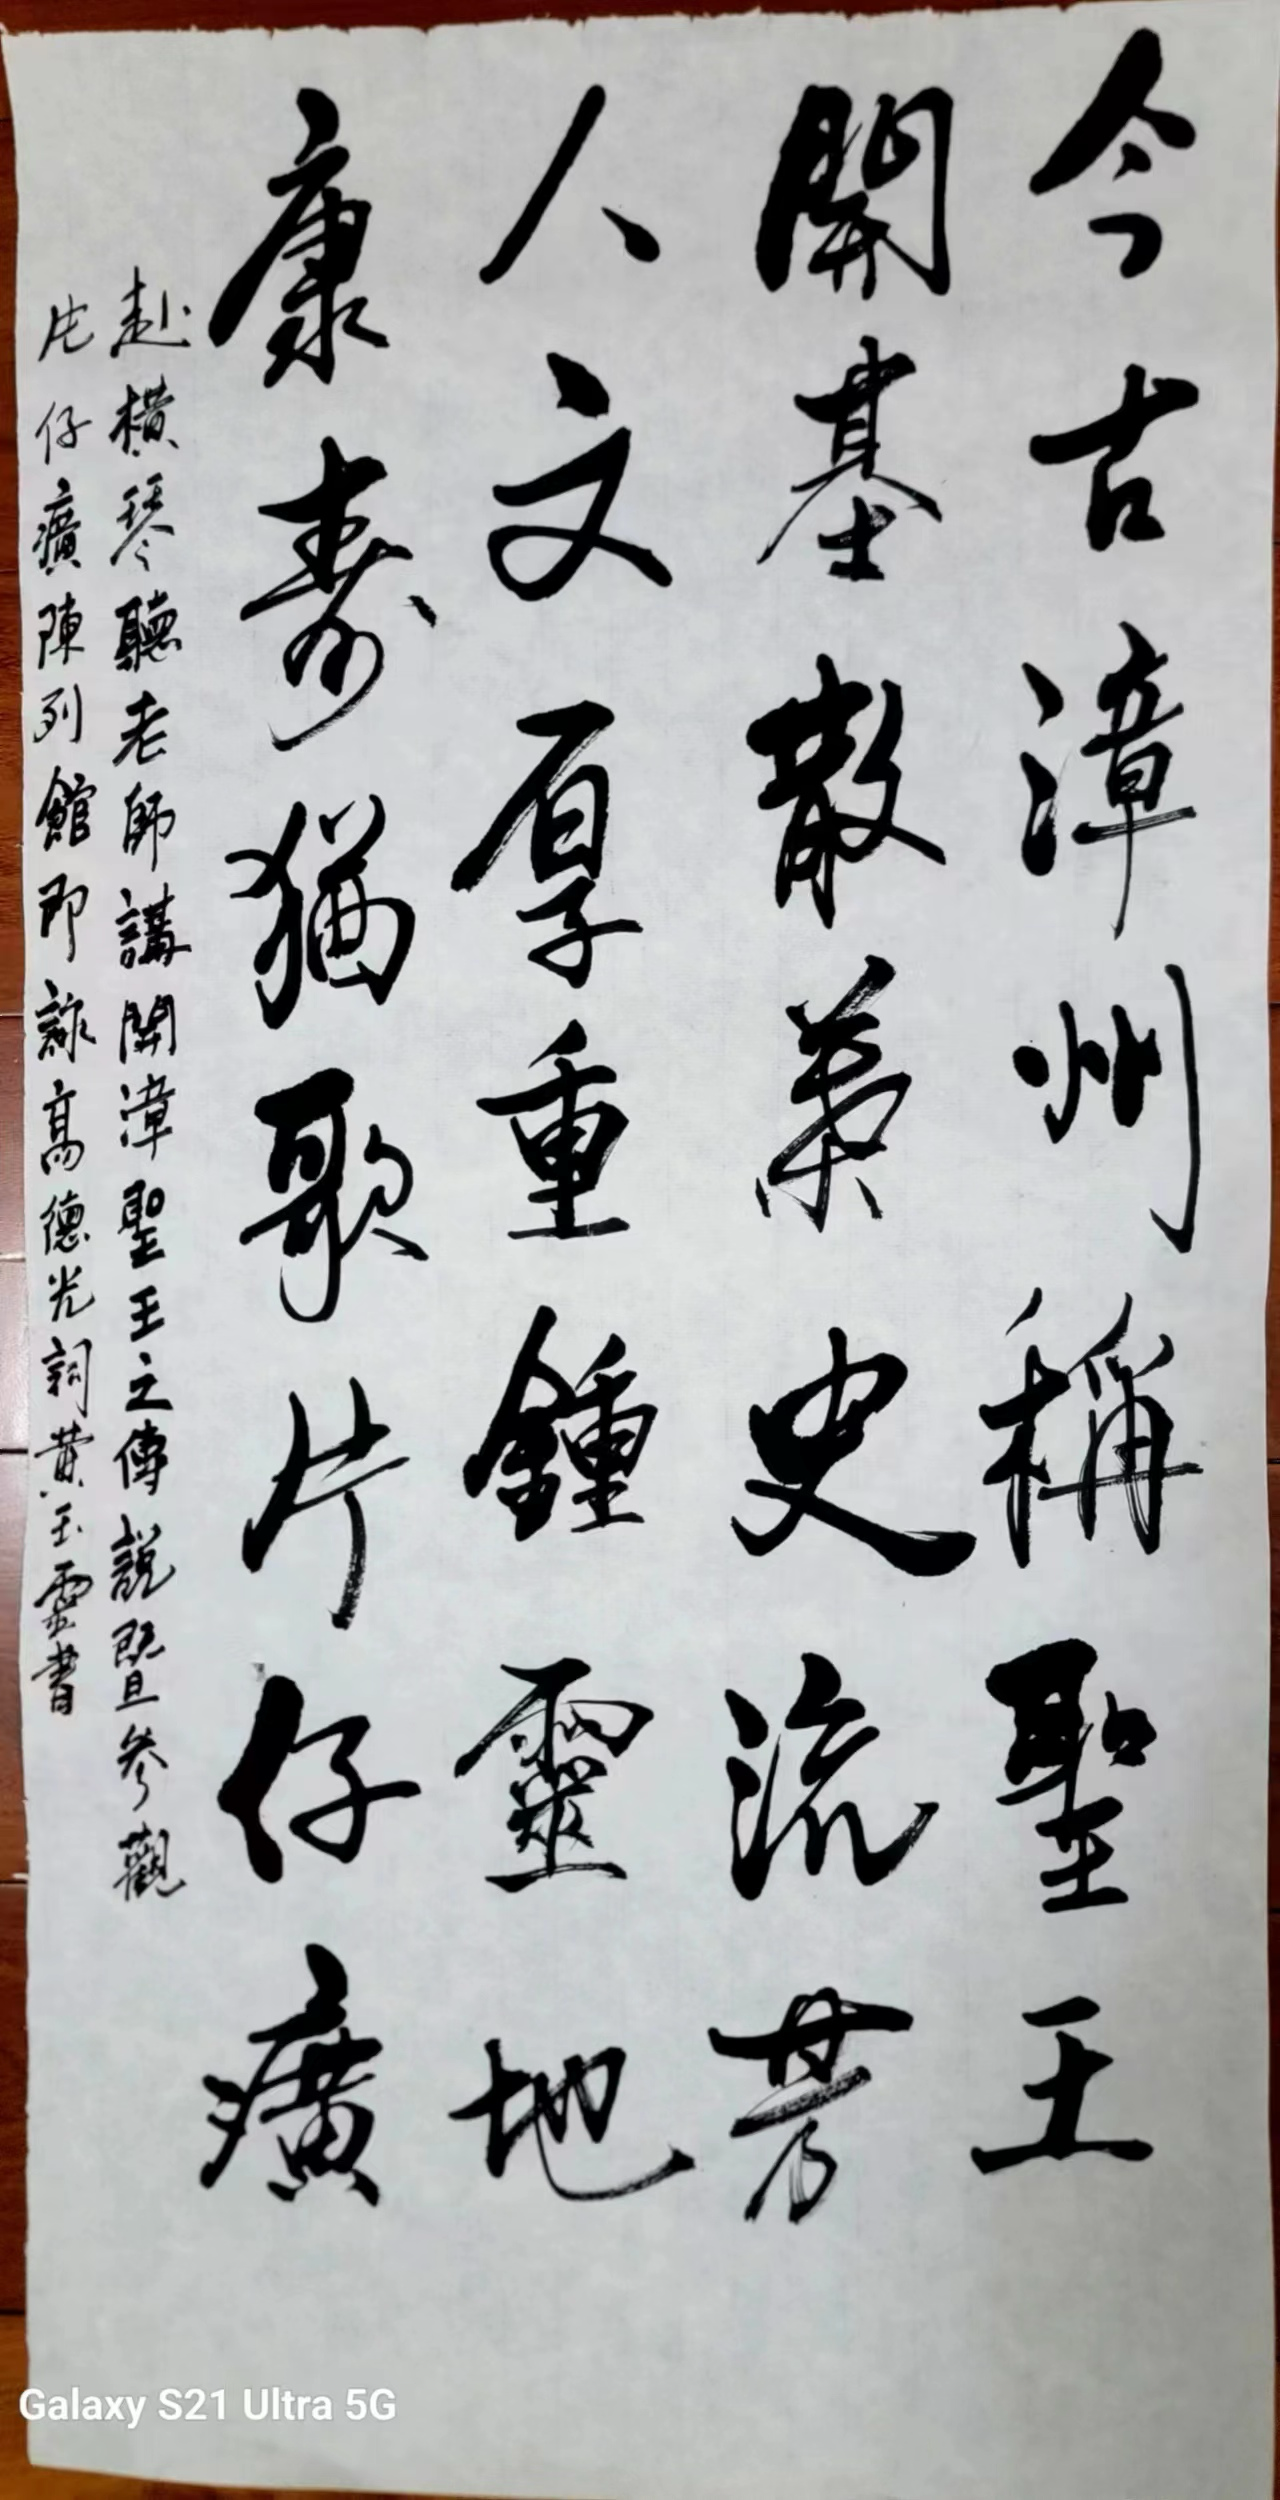 今古漳州稱聖王
開基散葉史流芳
人文厚重鍾靈地
康壽猶歌片仔癀
赴橫琴聽老師講開漳聖王之傳說暨參觀
片仔癀陳列館即詠高德光詞黃玉靈書
Galaxy S21 Ultra 5G